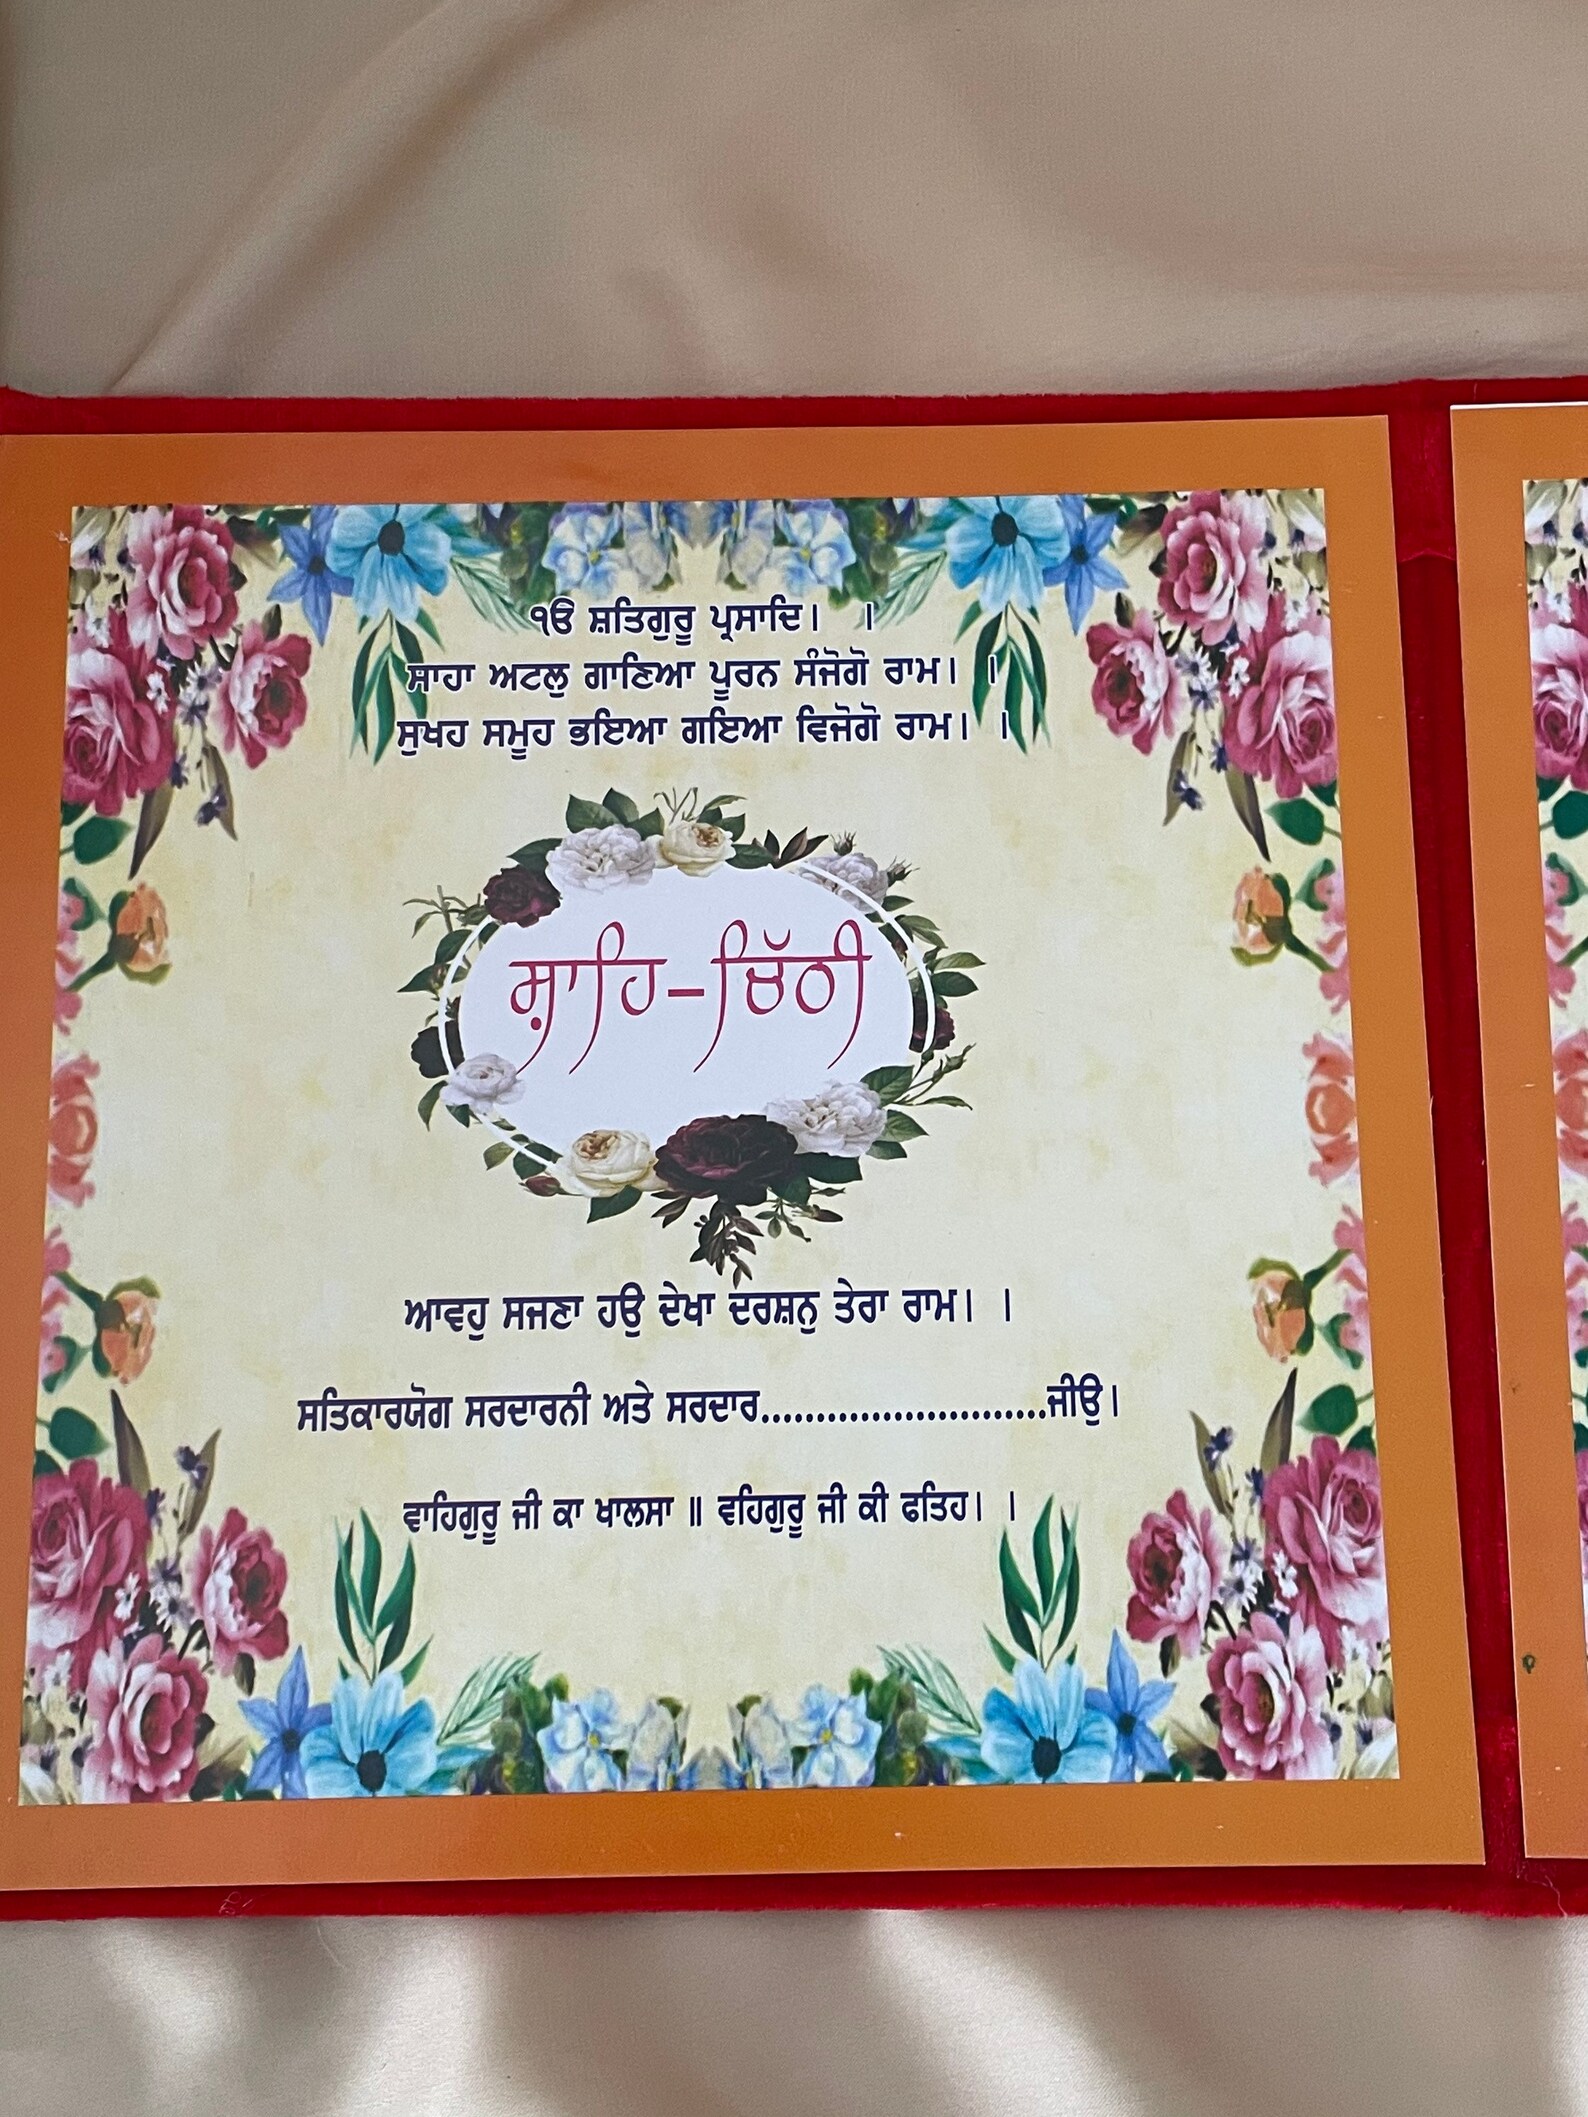 ੧ਓ ਸ਼ਤਿਗੁਰੂ ਪ੍ਰਸਾਦਿ। ।
ਸਾਹਾ ਅਟਲੁ ਗਾਣਿਆ ਪੂਰਨ ਸੰਜੋਗੋ ਰਾਮ। ।
ਸੁਖਹ ਸਮੂਹ ਭਇਆ ਗਇਆ ਵਿਜੋਗੋ ਰਾਮ। ।
ਸ਼ਾਹਿ-ਚਿੱਠੀ
ਆਵਹੁ ਸਜਣਾ ਹਉ ਦੇਖਾ ਦਰਸ਼ਨੁ ਤੇਰਾ ਰਾਮ। ।
ਸਤਿਕਾਰਯੋਗ ਸਰਦਾਰਨੀ ਅਤੇ ਸਰਦਾਰ..........................ਜੀਉ।
ਵਾਹਿਗੁਰੂ ਜੀ ਕਾ ਖਾਲਸਾ ॥ ਵਹਿਗੁਰੂ ਜੀ ਕੀ ਫਤਿਹ। ।